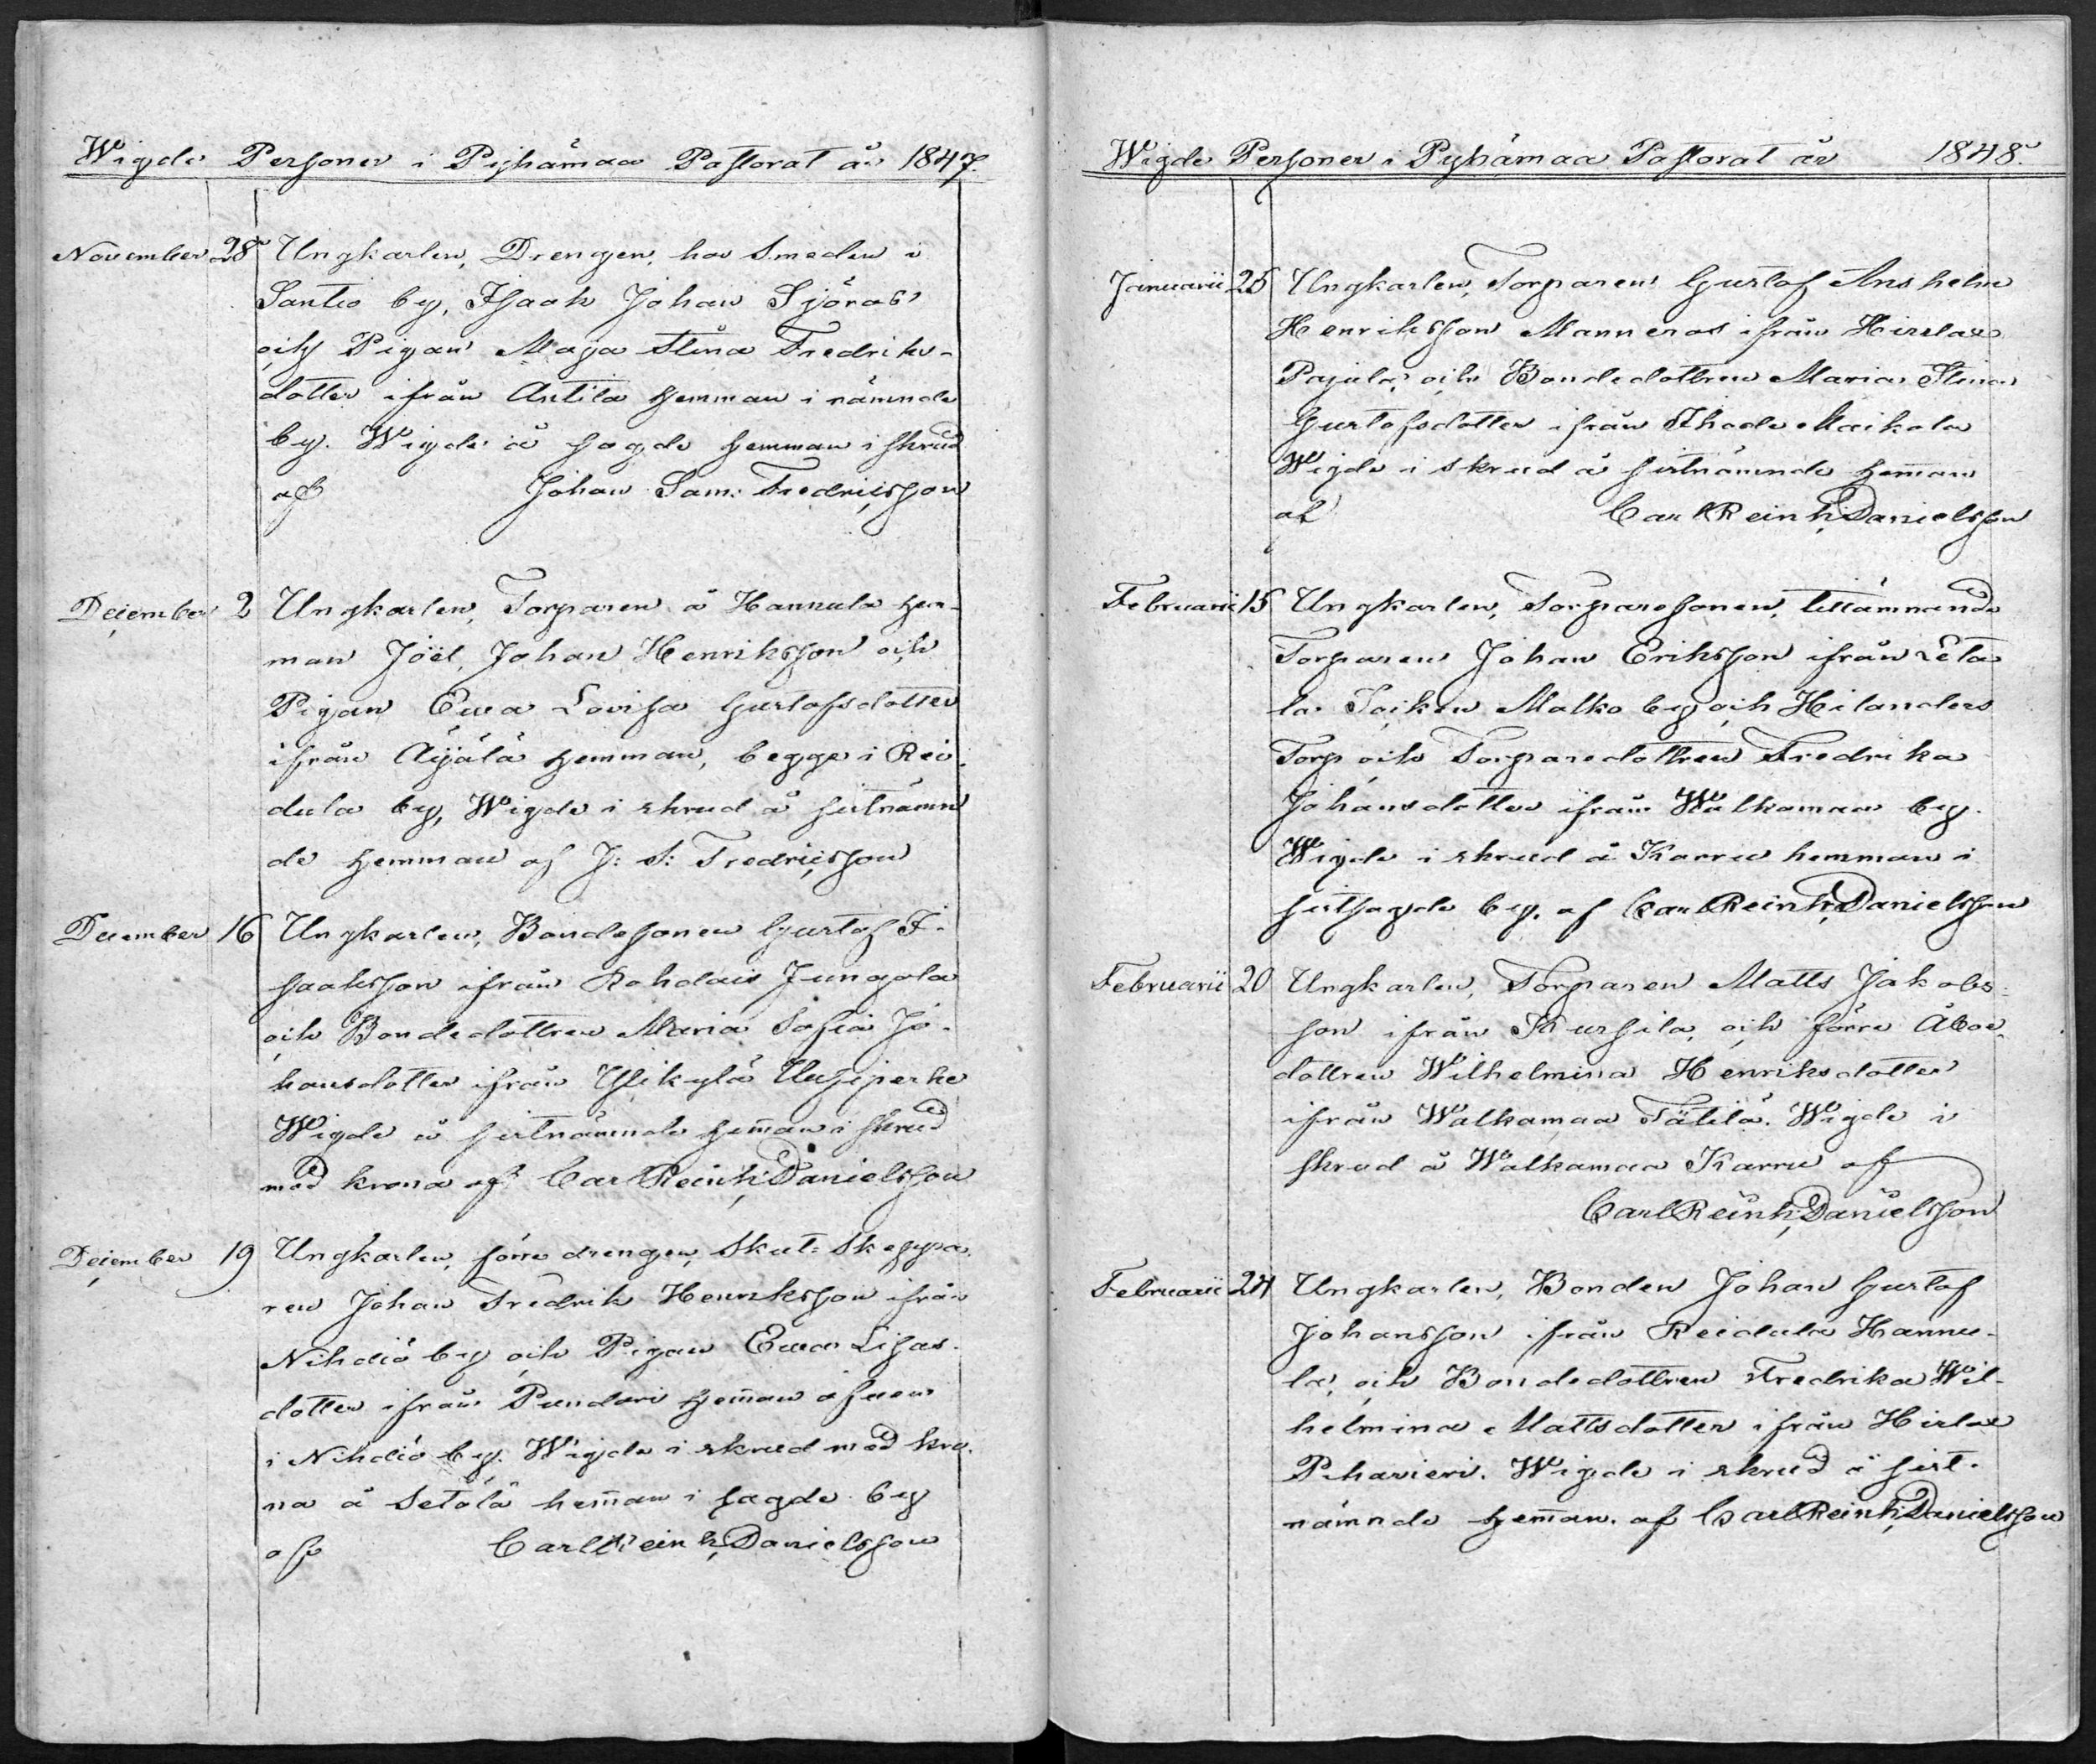 Wigde Personer i Pyhämaa Pastorat år 1847.
November 28 Ungkarlen, Drengen, hos Smeden i
Santio by, Isaak Johan Sjöros
och Pigan Maja Stina Fredriks-
dotter ifrån Antila hemman i nämnde
by. Wigde å sagde hemman i skrud
af Johan Sam: Fredricsson
December 2 Ungkarlen, Torparen å Hannula hem-
man Joël Johan Henriksson och
Pigan Ewa Lovisa Gustafsdotter
ifrån Äijälä hemman, begge i Rei-
dula by, Wigde i skrud å sistnämn
de hemman af J: S: Fredricsson
December 16 Ungkarlen, Bondesonen Gustaf I-
saaksson ifrån Rohdais Jungola
och Bondedottren Maria Sofia Jo-
hansdotter ifrån Ylikylä Uusiperhe
Wigde å sistnämnde heman i skrud
med krona af Carl Reinh: Danielsson
December 19 Ungkarlen, förre drengen, Skut-Skeppa
ren Johan Fredrik Henriksson ifrån
Nihdiö by och Pigan Ewa Lisas-
dotter ifrån Pundari heman
i Nihdiö by. Wigde i skrud med kro-
na å Setälä heman i sagde by
af Carl Reinh: Danielsson
Wigde Personer i Pyhämaa Pastorat år 1848.
Januarii 25 Ungkarlen, Torparen Gustaf Anshelm
Henriksson Manneros ifrån Hirslax
Pajula, och Bondedottren Maria Stina
Gustafsdotter ifrån Ihode Maikola
Wigde i skrud å sistnämnde heman
af Carl Reinh: Danielsson
Februarii 15 Ungkarlen, Torparesonen, tillämnande
Torparen Johan Eriksson ifrån Leta
la Soiken Malko by och Hilanders
Torp och Torparedottren Fredrika
Johansdotter ifrån Walkamaa by.
Wigde i skrud å Karru hemman i
sistsagde by, af Carl Reinh: Danielsson
Februarii 20 Ungkarlen, Torparen Matts Jakobs-
son ifrån Kursila, och förre Åboe-
dottren Wilhelmina Henriksdotter
ifrån Walkamaa Tätilä. Wigde i
skrud å Walkamaa Karru af
Carl Reinh: Danielsson
Februarii 24 Ungkarlen, Bonden Johan Gustaf
Johansson ifrån Reidula Hannu-
la, och Bondedottren Fredrika Wil-
helmina Mattsdotter ifrån Hirlax
Piharieri. Wigde i skrud å sist-
nämnde heman. af Carl Reinh: Danielsson